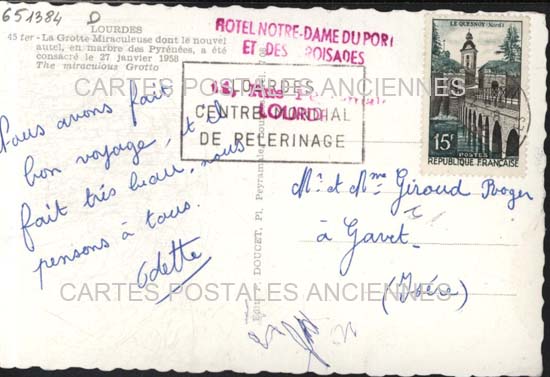 651384 D
LOURDES
45 ter - La Grotte Miraculeuse dont le nouvel
autel, en marbre des Pyrénées, a été
consacré le 27 janvier 1958
The miraculous Grotto
HOTEL NOTRE-DAME DU PORT
ET DES CROISADES
LOURDES
LOURDES
CENTRE MONDIAL
DE PELERINAGE
LE QUESNOY (Nord)
15F
POSTES
REPUBLIQUE FRANÇAISE
CARTES POSTALES ANCIENNES
Nous avons fait
bon voyage, et il
fait très beau, nous
pensons à tous.
Odette
Edit. P. DOUCET, Pl. Peyramale, Lourdes
Mr et Mme Giroud Roger
à Gavet
(Isère)
CARTES POSTALES ANCIENNES